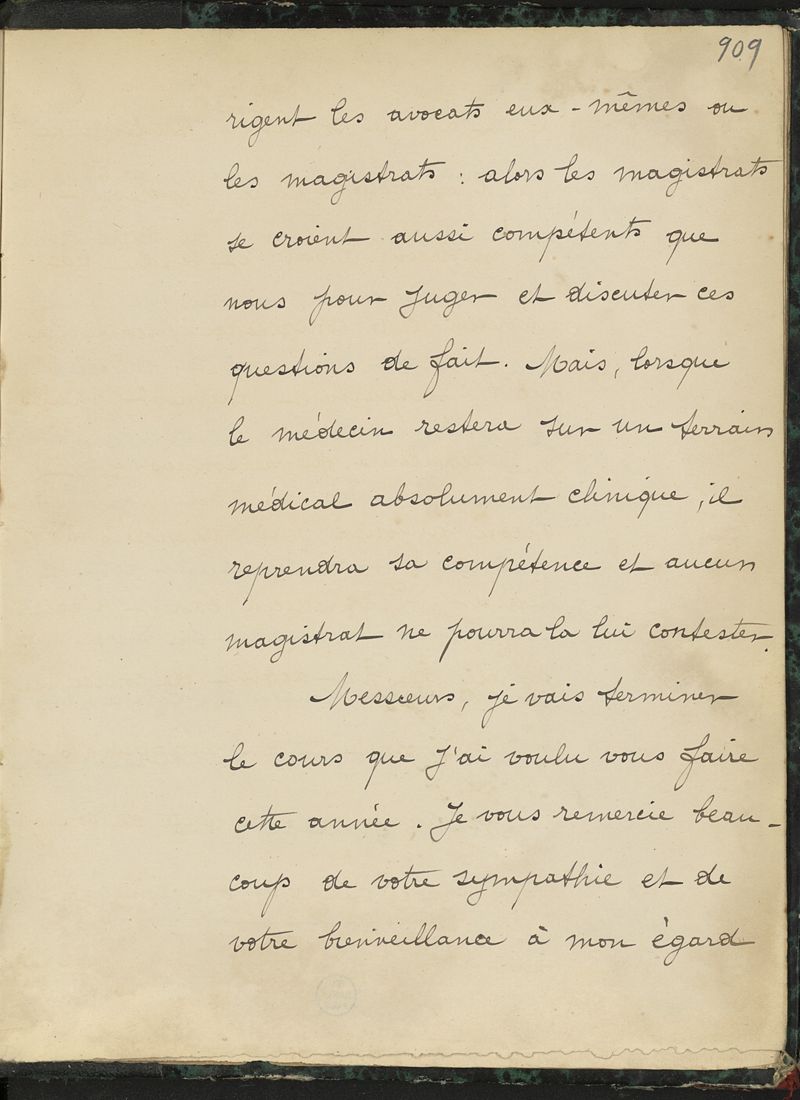 909
rigent les avocats eux-mêmes ou
les magistrats : alors les magistrats
se croient aussi compétents que
nous pour juger et discuter ces
questions de fait. Mais, lorsque
le médecin restera sur un terrain
médical absolument clinique, il
reprendra sa compétence et aucun
magistrat ne pourra la lui contester.
Messieurs, je vais terminer
le cours que j'ai voulu vous faire
cette année. Je vous remercie beau-
coup de votre sympathie et de
votre bienveillance à mon égard